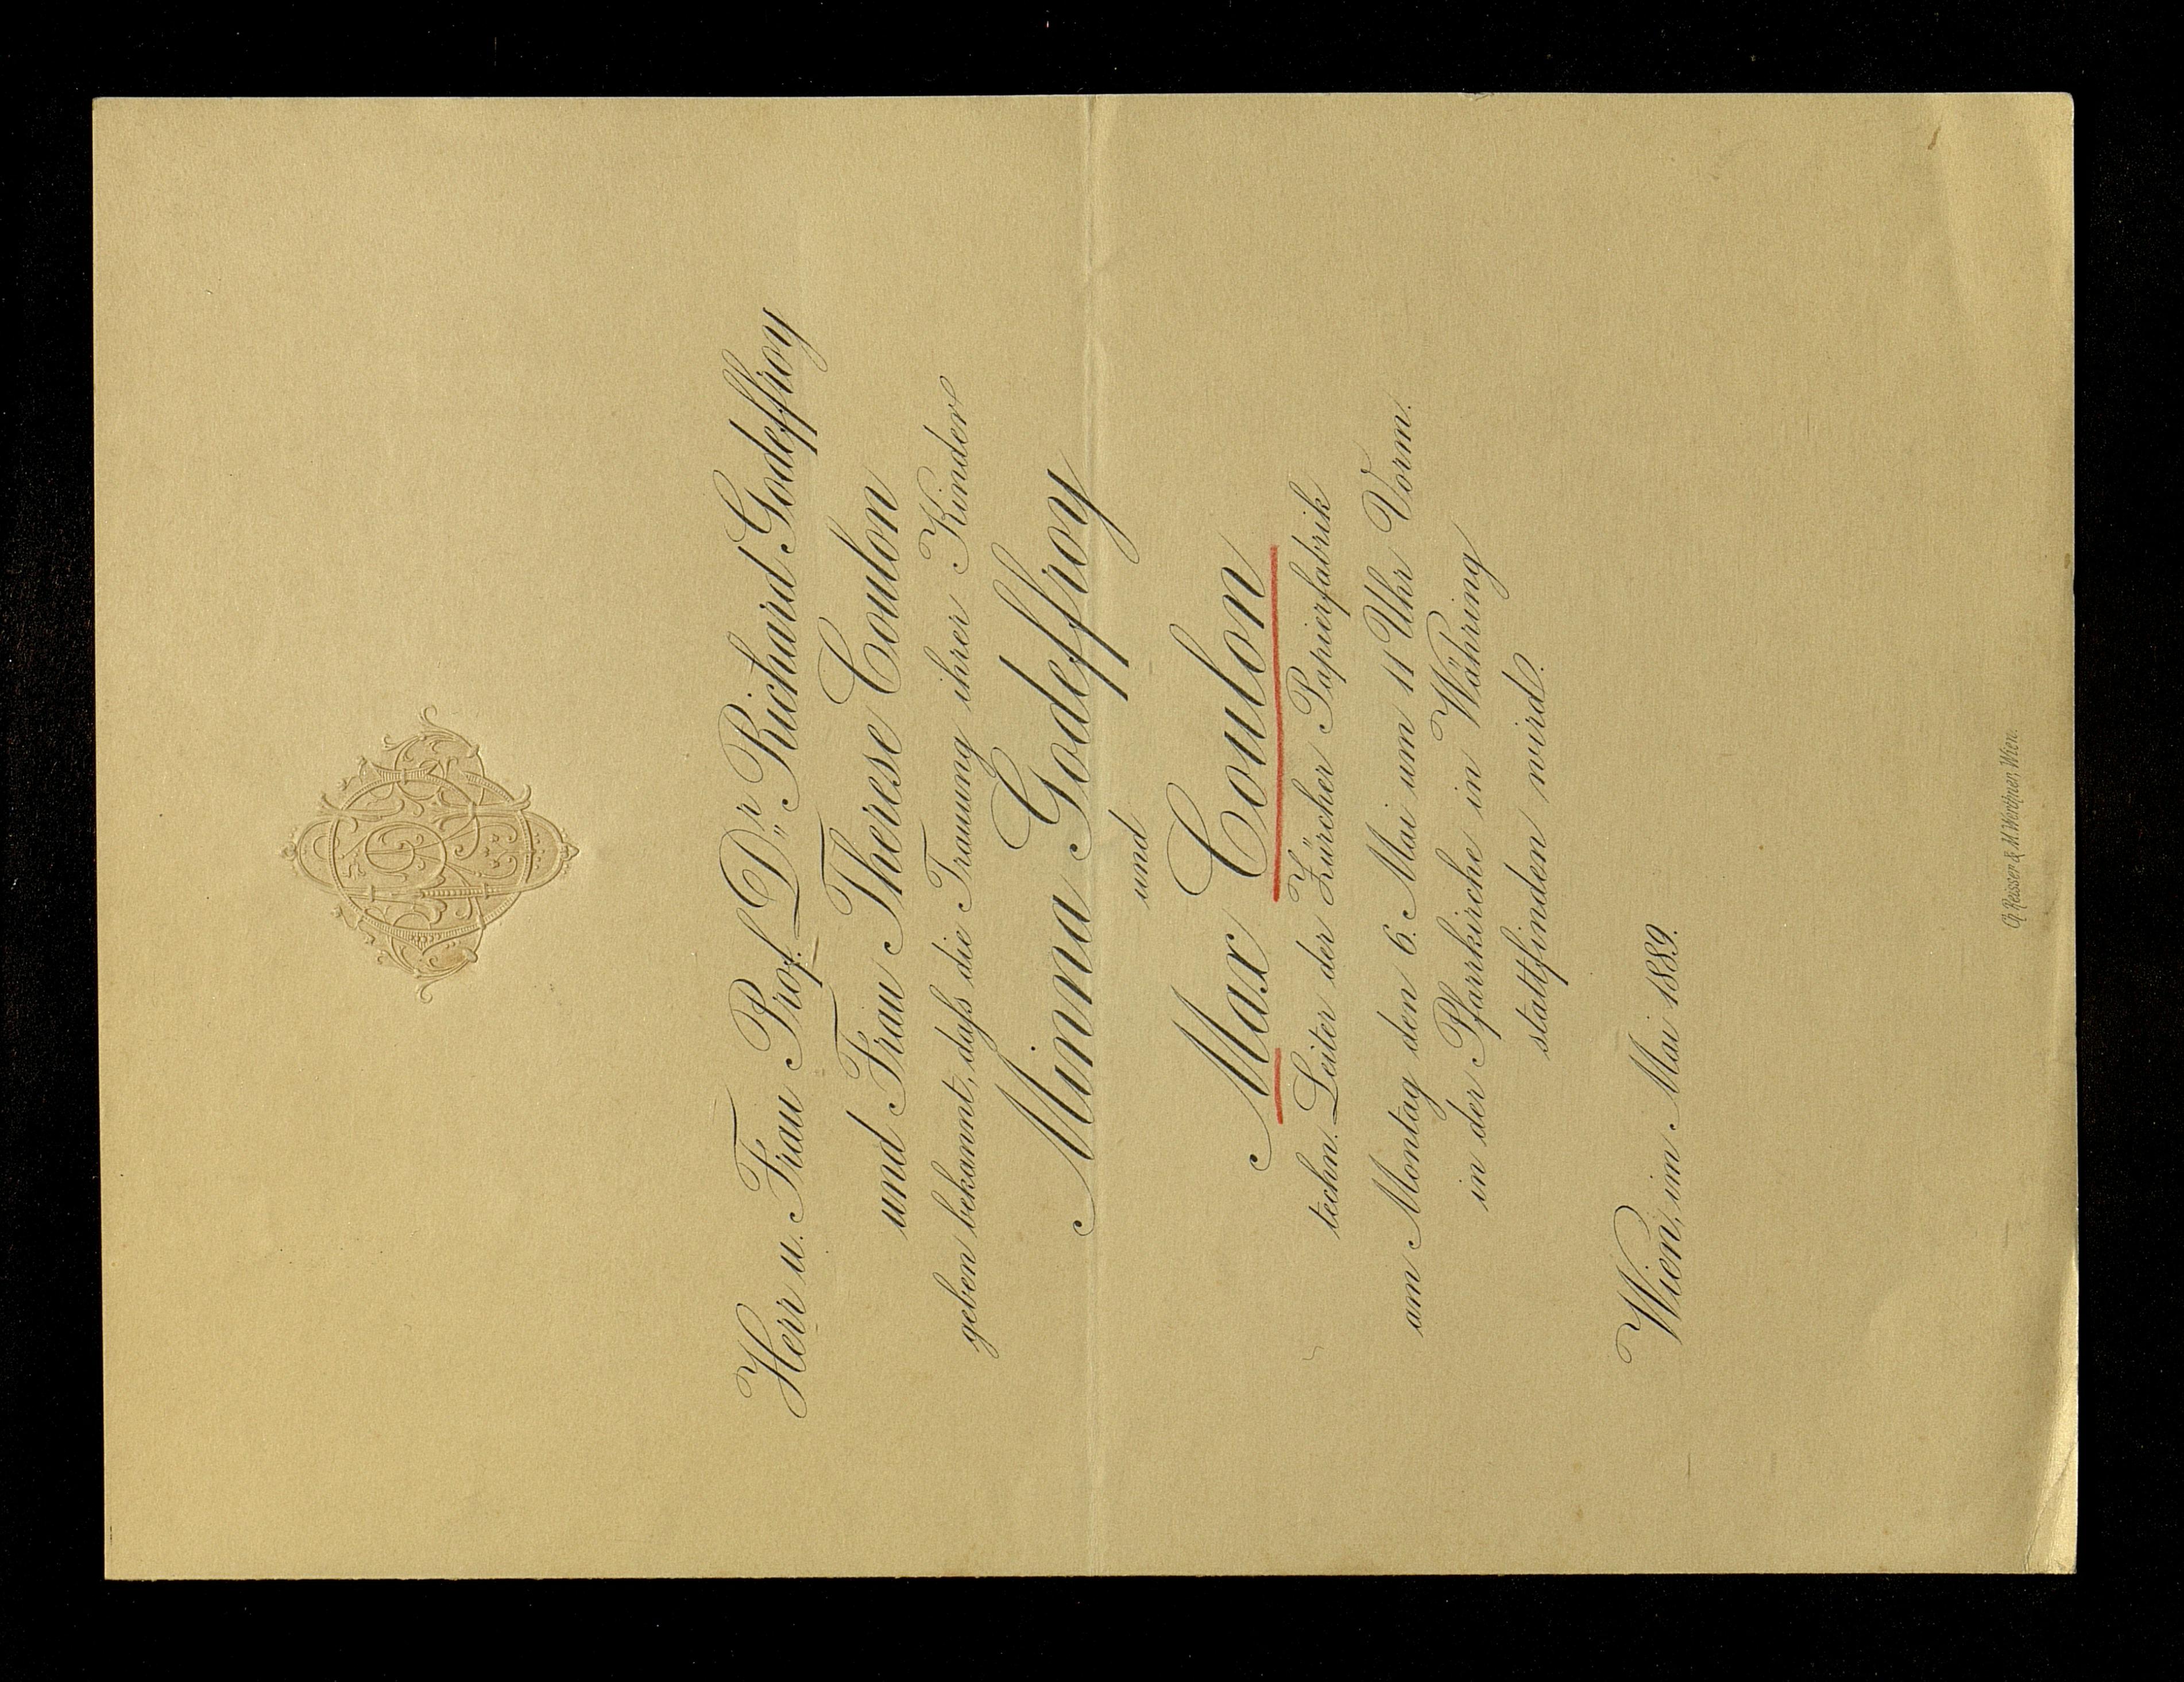 Herr u. Frau Prof. Dr. Richard Godeffroy
und Frau Therese Coulon
geben bekannt, daſs die Trauung ihrer Kinder
Minna Godeffroy
und
Max Coulon
techn. Leiter der Zürcher Papierfabrik
am Montag den 6. Mai um 11 Uhr Vorm.
in der Pfarrkirche in Währing
stattfinden wird.
Wien, im Mai 1889.
Ch. Reisser & M. Werthner, Wien.